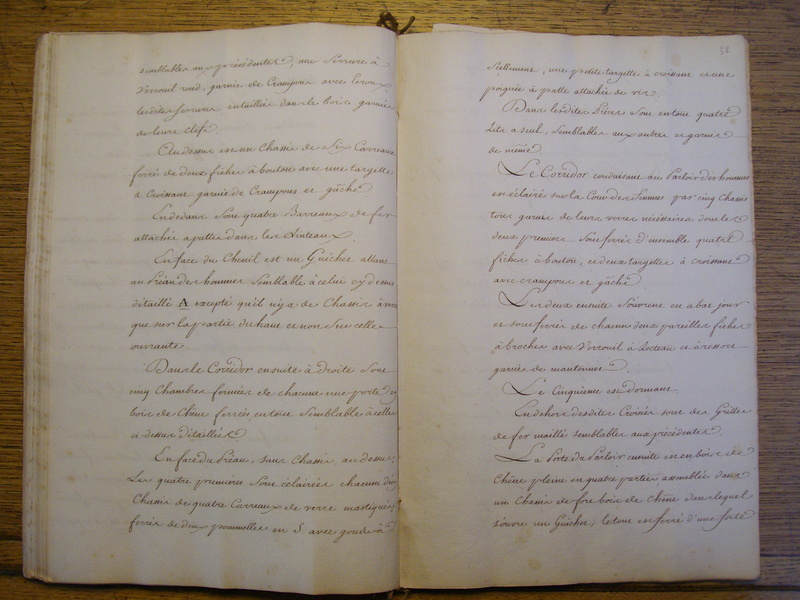 semblables aux précédentes, une Serrure à
Verrouil rond, garnie de Crampons avec Ecroux,
lesdites serrures entaillées dans le bois garnies
de leurs clefs.
Au dessus est un Chassis de Six Carreaux
ferré de deux fiches à boutons avec une targette
à Croissant garnie de Crampons et gâche
En dedans sont quatre Barreaux de fer
attachés à pattes dans les Linteaux.
En face du Chenil est un Guichet allant
au Préau des hommes semblable à celui cy dessus
détaillé A excepté qu'il n'y a de Chassis à
que sur la partie du haut et non sur celle
ouvrante
Dans le Corridor ensuite à droite sont
cinq Chambres fermées de chacune une porte
bois de Chêne ferrées en tout semblable à celles
cy dessus détaillées
En face du Préau, sans Chassis au dessus,
Les quatre premieres sont éclairées chacune d'un
Chassis de quatre Carreaux de verre mastiqués
ferrés de deux poumelles en S. avec gonds à
38
scellement, une petite targette à croissant et une
poignée à patte attachée de vis
Dans lesdites Pièces sont en tout quatre
Lits a seul, semblables aux autres et garnis
de même
Le Corridor conduisant au Parloir des hommes
est éclairé sur la Cour des femmes par cinq Chassis
tous garnis de leurs verres nécessaires dont les
deux premiers sont ferrés d'ensemble quatre
fiches à bouton, et deux targettes à croissant
avec crampons et gâche
Les deux ensuite s'ouvrent en abat jour
et sont ferrés de chacun deux pareilles fiches
à broches avec Verrouil à et à ressort
garnis de mantonnets
Le Cinquieme est dormant
En dehors desdites Croisées sont des Grilles
de fer maillé semblables aux précédentes.
La Porte du Parloir ensuite est en bois de
Chêne pleine en quatre parties assemblée dans
un Chassis de fort bois de chêne dans lequel
s'ouvre un Guichet, le tout est ferré d'une forte